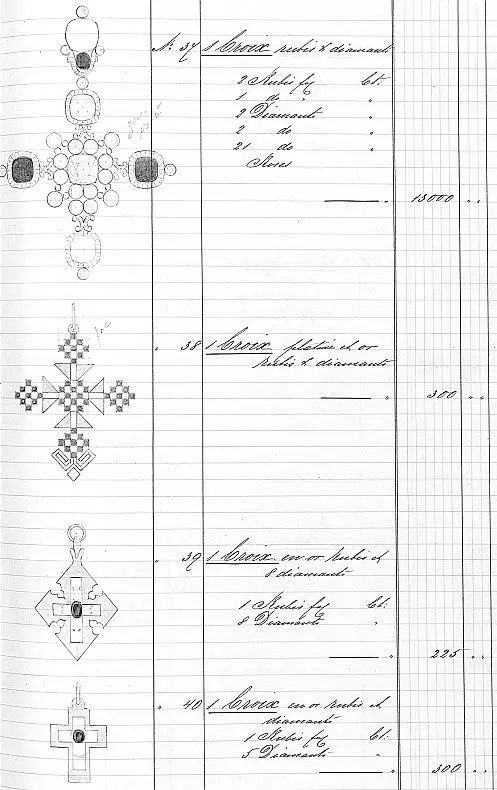 No. 37 1 Croix rubis & diamants
2 Rubis fg Ct.
1 do " "
2 Diamants "
2 do "
21 do "
Roses
" 13000 " "
" 38 1 Croix platine et or
rubis & diamants
" 300 " "
" 39 1 Croix en or rubis et
8 diamants
1 Rubis fg Ct.
8 Diamants "
" 225 " "
" 40 1 Croix en or rubis et
diamants
1 Rubis fg Ct.
5 Diamants "
" 300 " "